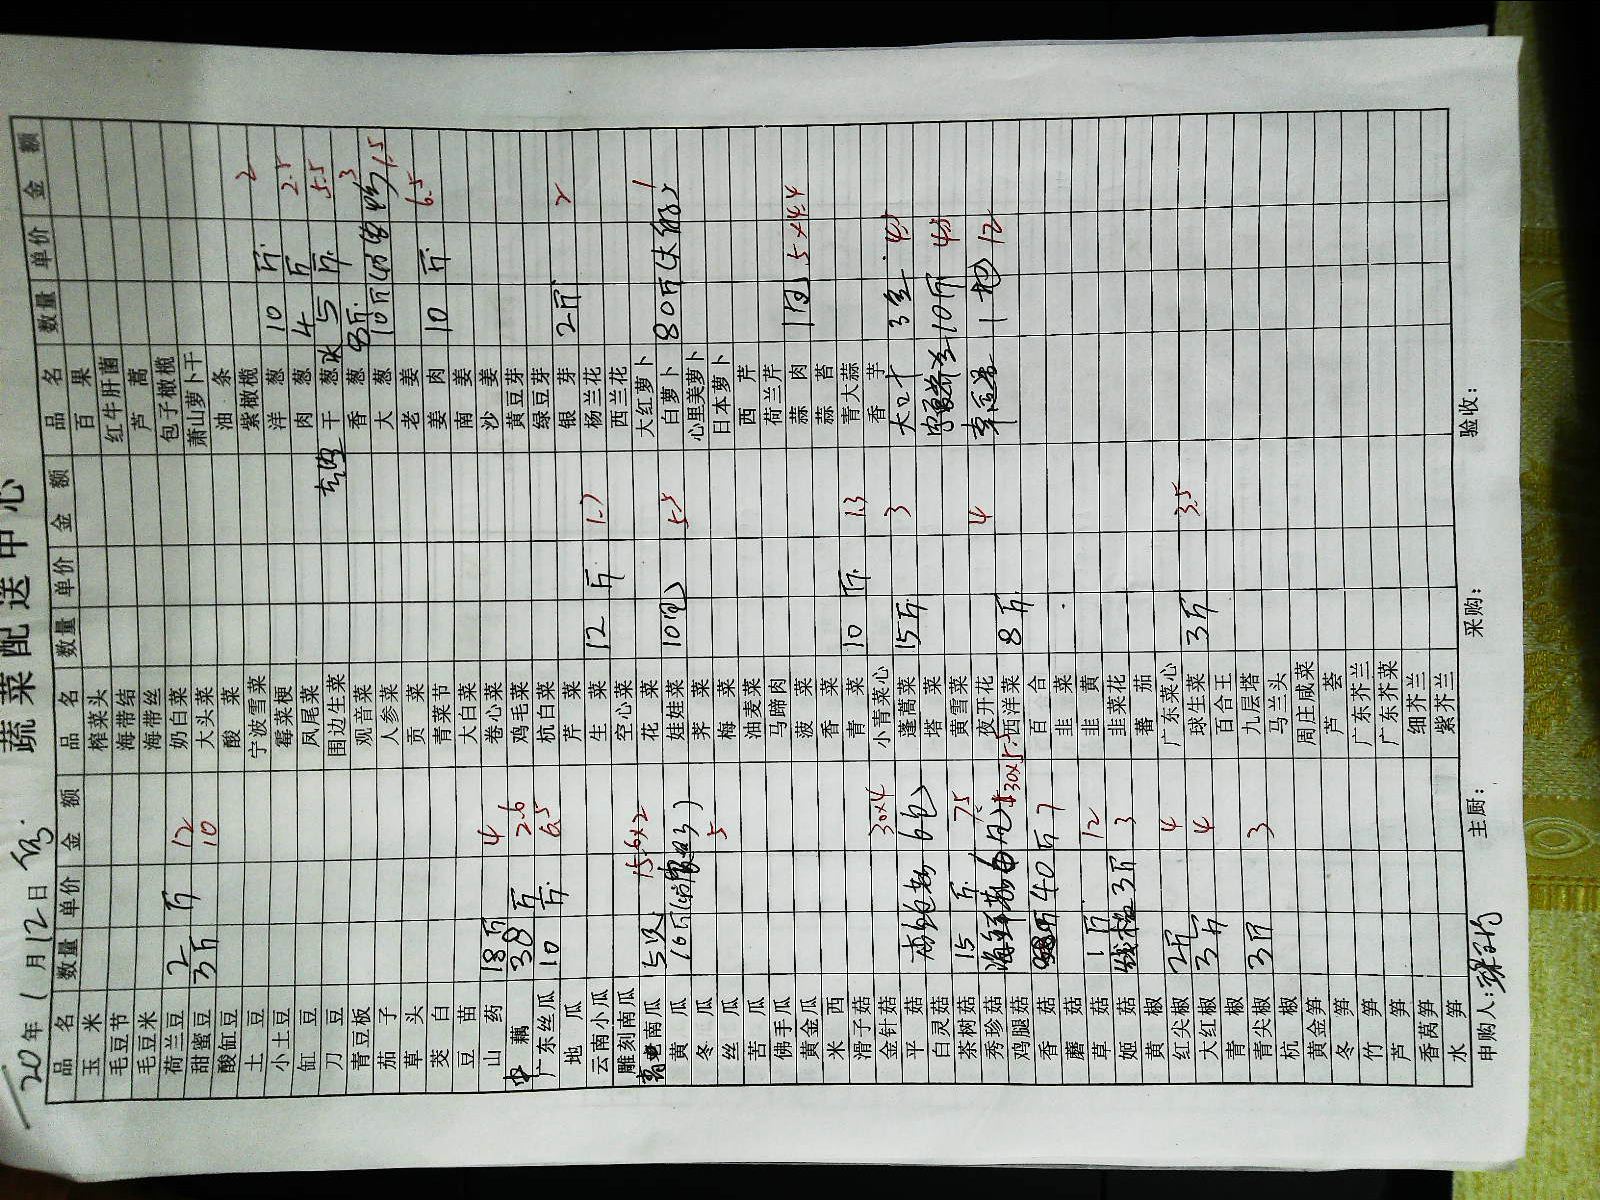 蔬菜配送中心
20 年 1 月 12 日
品名 数量 单价 金额 品名 数量 单价 金额 品名 数量 单价 金额
玉米 榨菜头 百果
毛豆节 海带结 红牛肝菌
毛豆米 海带丝 芦蒿
荷兰豆 2 斤 12 奶白菜 包子橄榄
甜蜜豆 3斤 10 大头菜 萧山萝卜干
酸缸豆 酸菜 油条
土豆 宁波雪菜 紫橄榄 2
小土豆 霉菜梗 洋葱 10 斤 2.5
缸豆 凤尾菜 肉葱 4 斤 5.5
刀豆 围边生菜 干葱 5 斤 3
青豆板 观音菜 香葱 8斤
茄子 人参菜 大葱 10斤 1.5
草头 贡菜 老姜 6.5
茭白 青菜节 姜肉 10 斤
豆苗 大白菜 南姜
山药 18斤 4 卷心菜 沙姜
藕 38 斤 2.6 鸡毛菜 黄豆芽
广东丝瓜 10 斤 6.5 杭白菜 绿豆芽
地瓜 芹菜 银芽 2斤 2
云南小瓜 生菜 12 斤 1.7 杨兰花
雕刻南瓜 空心菜 西兰花
南瓜 5只 15.6x2 花菜 大红萝卜
黄瓜 16斤 娃娃菜 10包 5.5 白萝卜 80斤 1
冬瓜 荠菜 心里美萝卜
丝瓜 5 梅菜 日本萝卜
苦瓜 油麦菜 西芹
佛手瓜 马蹄肉 荷兰芹
黄金瓜 菠菜 蒜肉 1包 5x4.4
米西 香菜 蒜苔
滑子菇 青菜 10 斤 1.3 青大蒜
金针菇 30x4 小青菜心 香芋
平菇 6包 蓬蒿菜 15斤 3
白灵菇 塔菜 10斤
茶树菇 15 斤 7.5 黄雪菜
秀珍菇 夜开花 4 12
鸡腿菇 西洋菜 8斤
香菇 40斤 7 百合
蘑菇 韭菜
草菇 1斤 12 韭黄
姬菇 3斤 3 韭菜花
黄椒 番茄
红尖椒 2斤 4 广东菜心
大红椒 3斤 4 球生菜 3斤 3.5
青椒 百合王
青尖椒 3斤 3 九层塔
杭椒 马兰头
黄金笋 周庄咸菜
冬笋 芦荟
竹笋 广东芥兰
芦笋 广东芥菜
香莴笋 细芥兰
水笋 紫芥兰
申购人: 主厨: 采购: 验收: